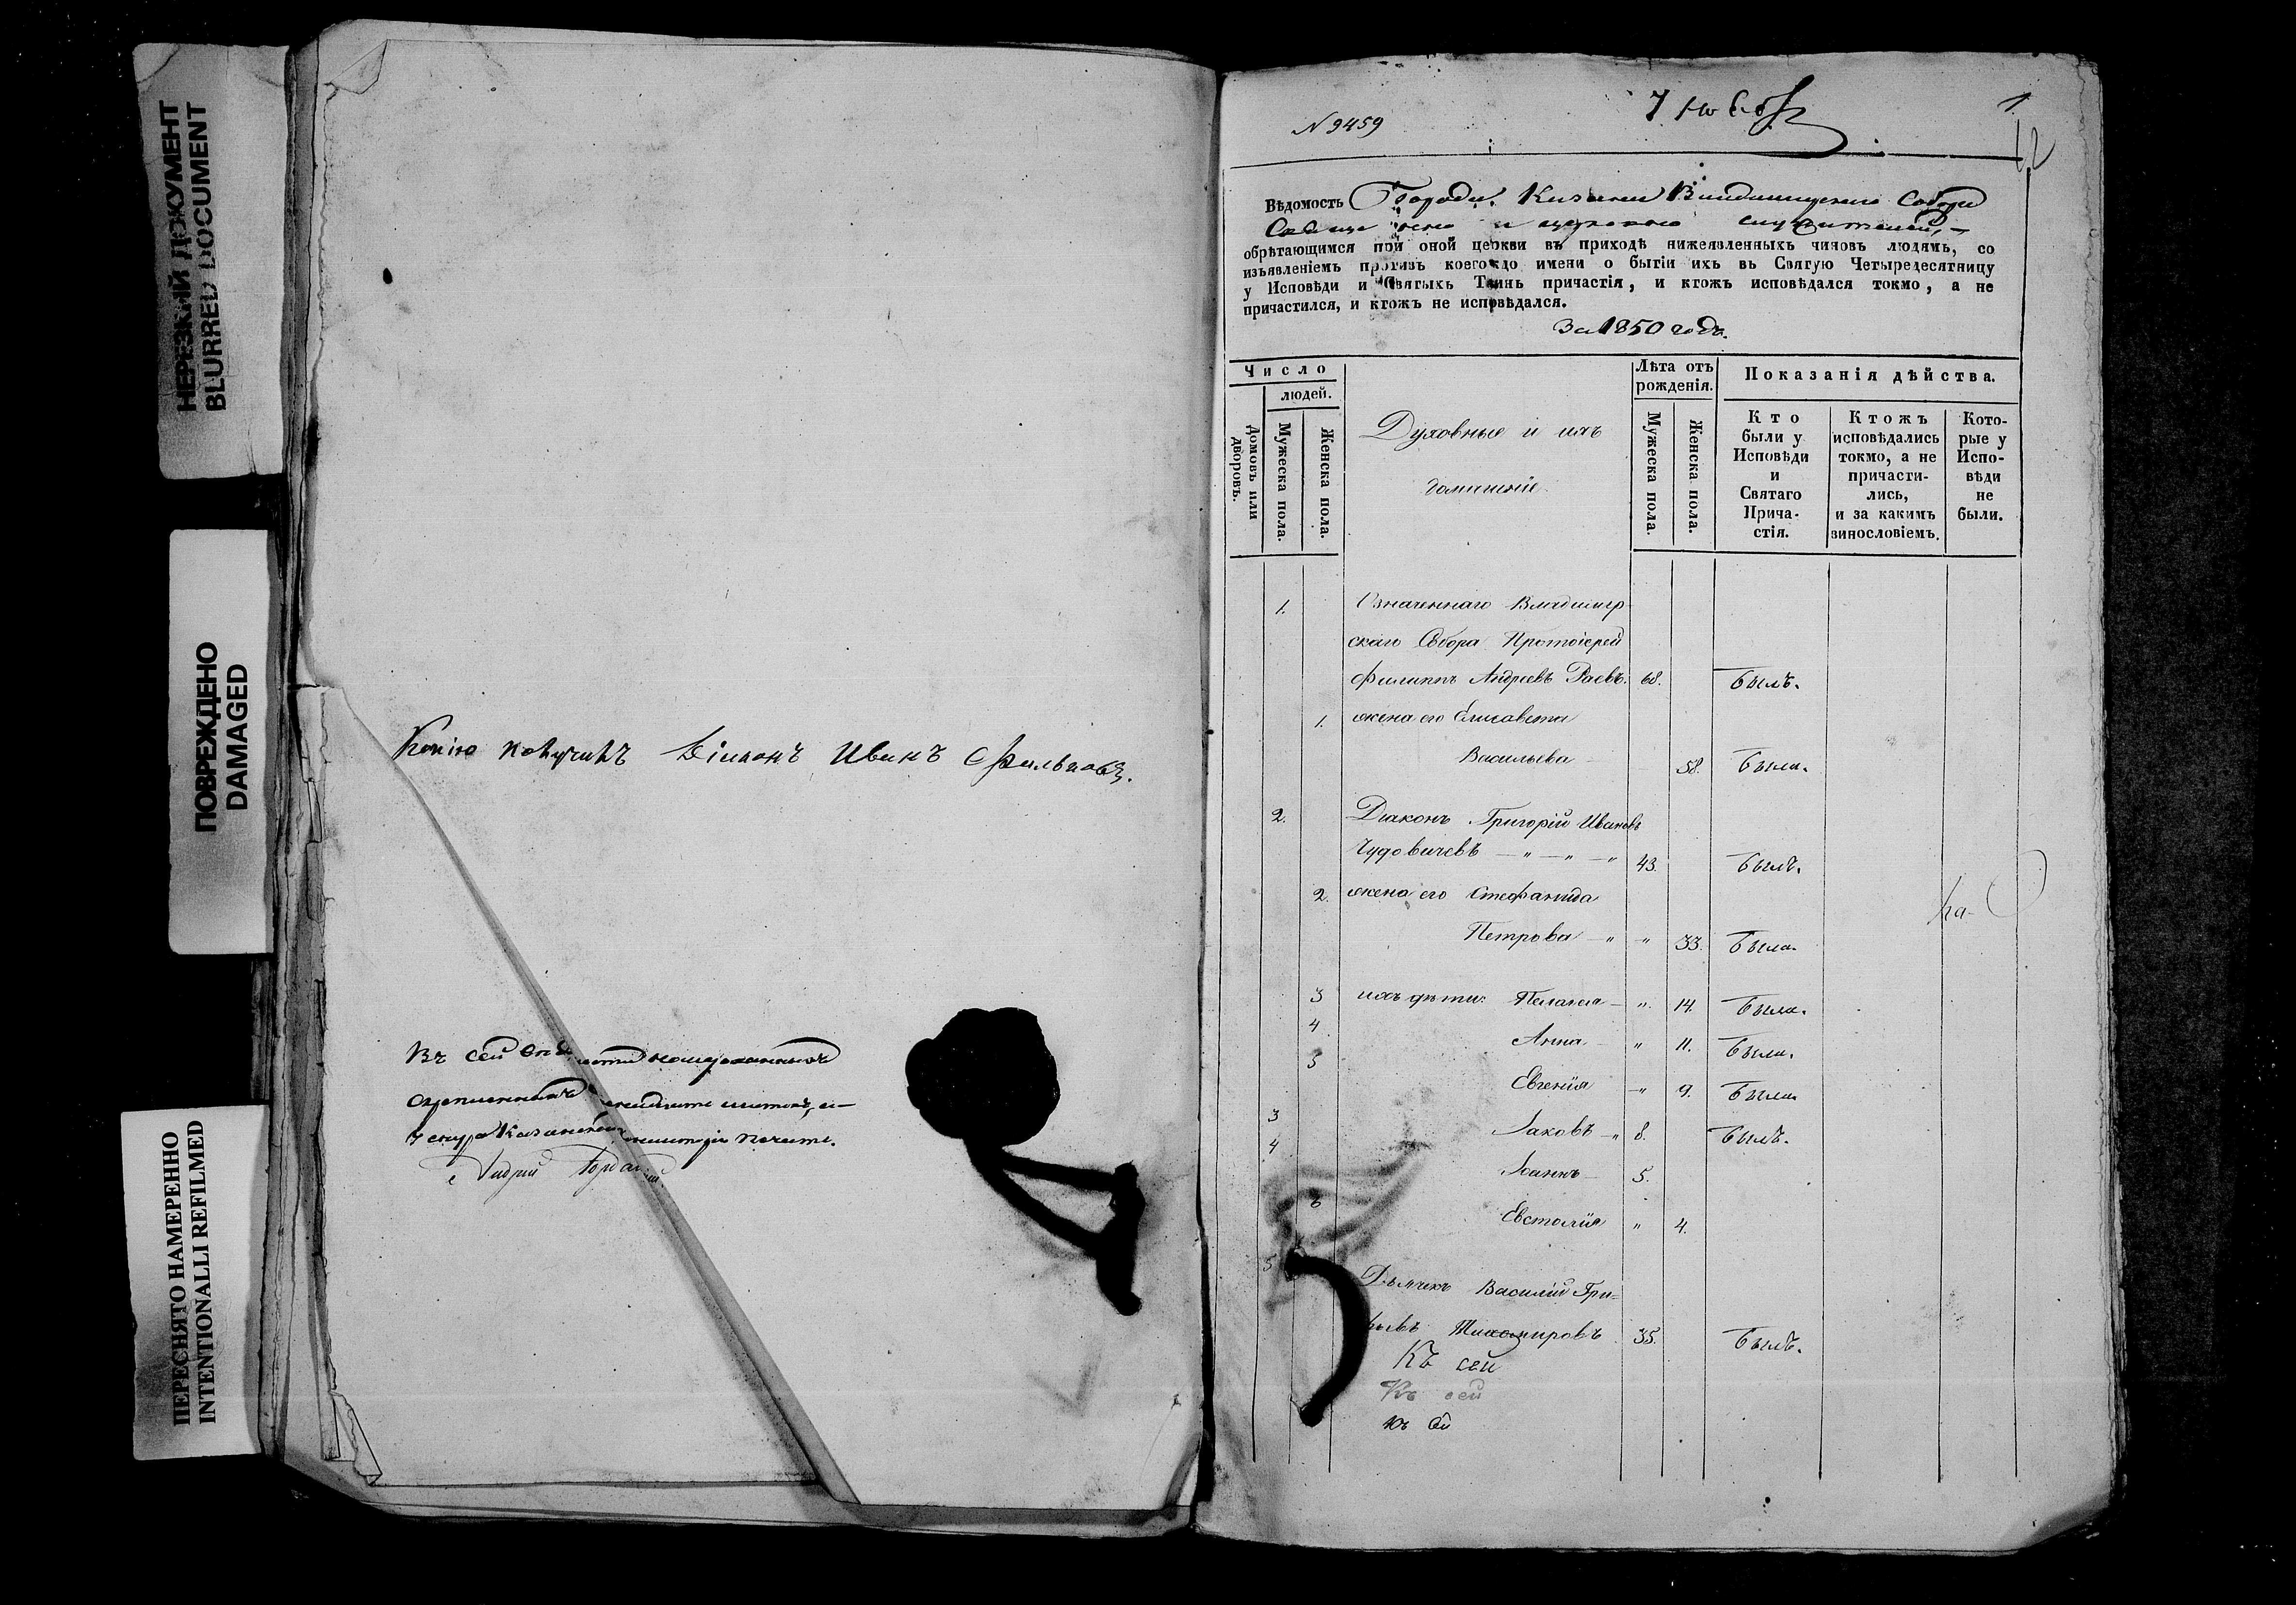 НЕРЕЗКИЙ ДОКУМЕНТ
BLURRED DOCUMENT
ПОВРЕЖДЕНО
DAMAGED
ПЕРЕСНЯТО НАМЕРЕННО
INTENTIONALLI REFILMED
Копію Діаконъ Иванъ
Въ сей
Казанской печати.
N 9459
7 1
12
Вѣдомость Города Казани Владимирскаго Собора
Священно и церковно служителей,
обрѣтающимся при оной церкви въ приходѣ нижеявленныхъ чиновъ людямъ, со
изъявленіемъ противъ коегождо имени о бытіи ихъ въ Святую Четыредесятницу
у Исповѣди и Святыхъ Таинъ причастія, и ктожъ исповѣдался токмо, а не
причастился, и ктожъ не исповѣдался.
За 1850 годъ.
Число
людей.
Домовъ или дворовъ.
Мужеска пола.
Женска пола.
Духовные и ихъ
домашніе.
Лѣта отъ рожденія.
Мужеска пола.
Женска пола.
Показанія дѣйства.
Кто были у Исповѣди и Святаго Прича-стія.
Ктожъ исповѣдались токмо, а не причасти-лись, и за какимъ винословіемъ.
Кото-рые у Испо-вѣди не были.
1. Означеннаго Владимир
скаго Собора Протоіерей
Филиппъ Андреевъ Раевъ. 68. Былъ.
1. жена его Елисавета
Васильева 58. Была.
2. Діаконъ Григорій Ивановъ
Чудовичевъ — „ — „ — „ 43. Былъ.
2. жена его Стефанида
Петрова — „ „ 33. Была.
3 ихъ дѣти: Пелагея — „ 14. Была.
4 Анна — „ 11. Была.
5 Евгенія „ 9. Была
3 Іаковъ — „ 8. Былъ.
4 Іоаннъ — 5.
6 Евстолія „ 4.
5 Дьячекъ Василій Гри-
рьевъ Тихомировъ 35. Былъ.
Къ сей
Къ сей
къ